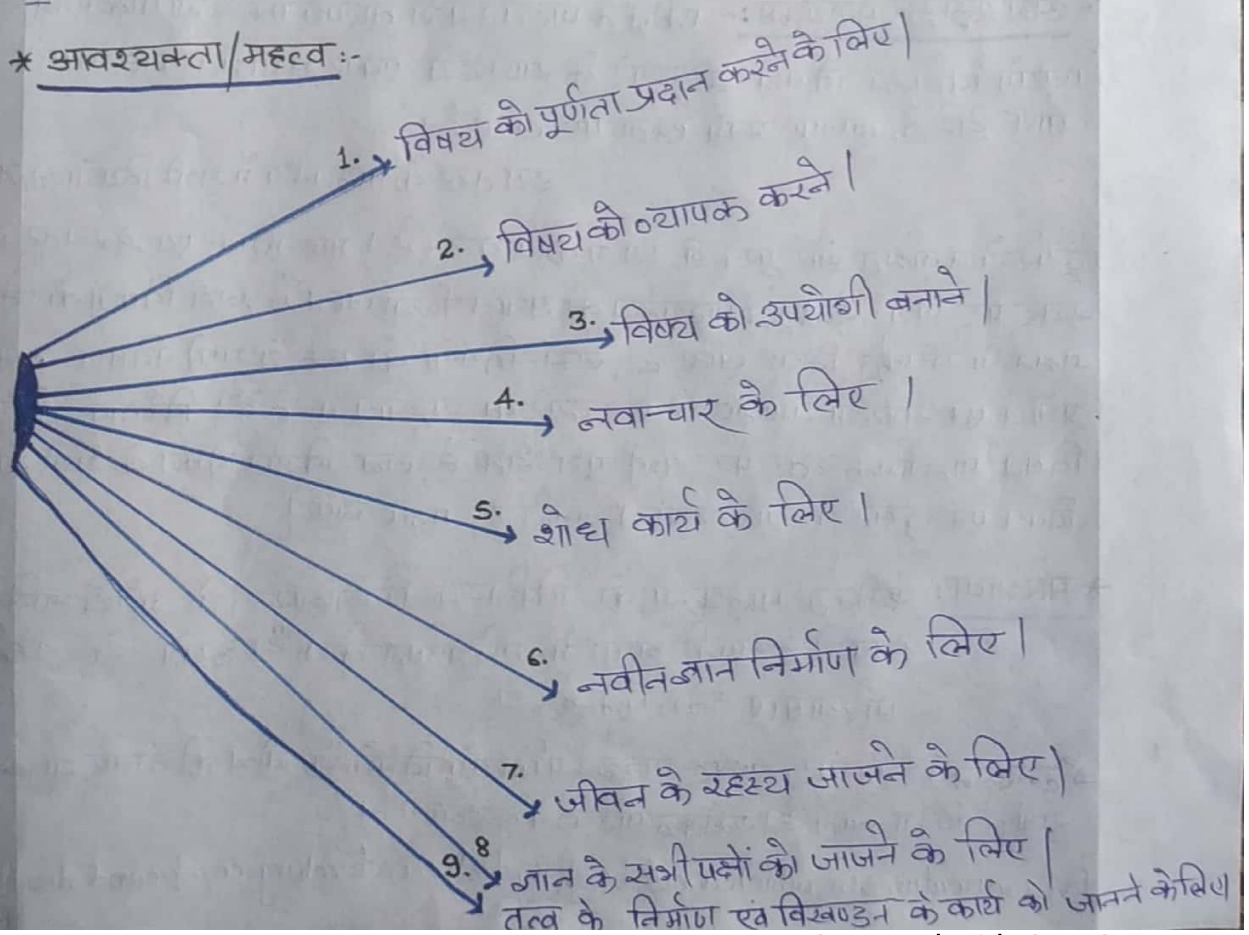 * आवश्यक्ता/महत्व :-
1. विषय को पूर्णता प्रदान करने के लिए।
2. विषय को व्यापक करने।
3. विषय को उपयोगी बनाने।
4. नवाचार के लिए।
5. शोध कार्य के लिए।
6. नवीन ज्ञान निर्माण के लिए।
7. जीवन के रहस्य जाजने के लिए।
8 ज्ञान के सभी पक्षों को जाजने के लिए।
9. तत्व के निर्माण एवं विखण्डन के कार्य को जानने के लिए।